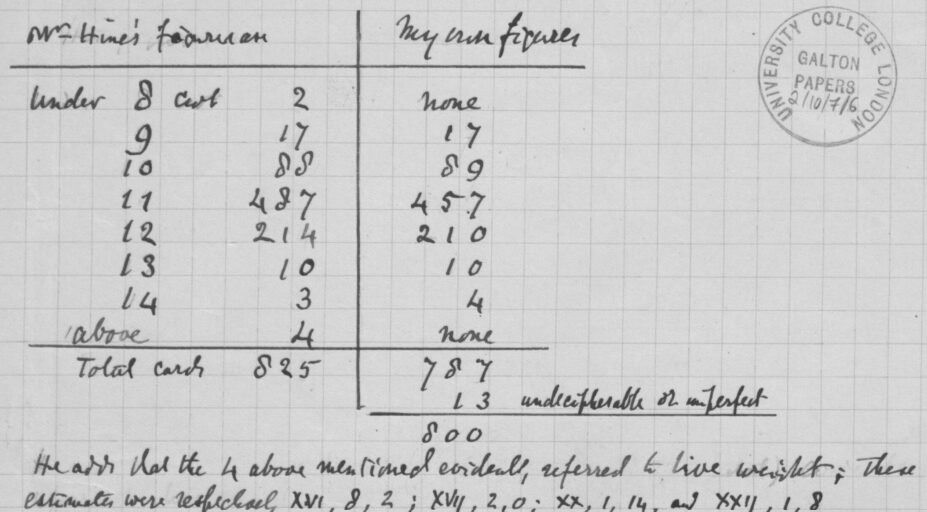 Mr Hine's figures are | My own figures
Under 8 cwt 2 | none
9 17 | 17
10 88 | 89
11 487 | 457
12 214 | 210
13 10 | 10
14 3 | 4
above 4 | none
Total cards 825 | 787
13 undecipherable or imperfect
800
He adds that the 4 above mentioned evidently referred to live weight; These
estimates were respectively XVI, 8, 2; XVII, 2, 0; XX, 1, 14, and XXII, 1, 8
UNIVERSITY COLLEGE LONDON
GALTON
PAPERS
2/10/7/6